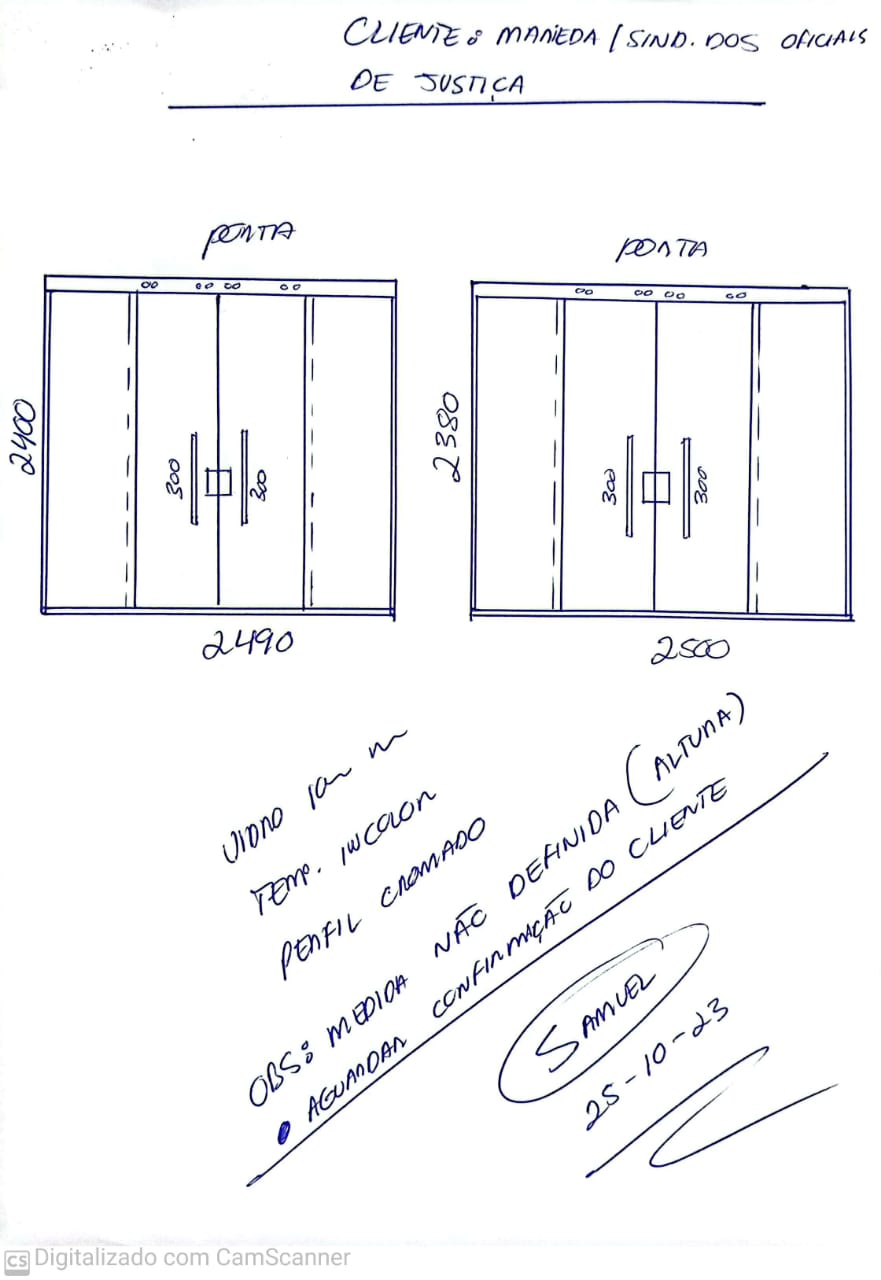 CLIENTE: MARIEDA / SIND. DOS OFICIAIS
DE JUSTIÇA
PORTA
PORTA
2400
300
300
2490
2380
300
300
2500
VIDRO 10m m
TEMP. INCOLOR
PERFIL CROMADO
OBS: MEDIDA NÃO DEFINIDA (ALTURA)
• AGUARDAR CONFIRMAÇÃO DO CLIENTE
SAMUEL
25-10-23
CS Digitalizado com CamScanner